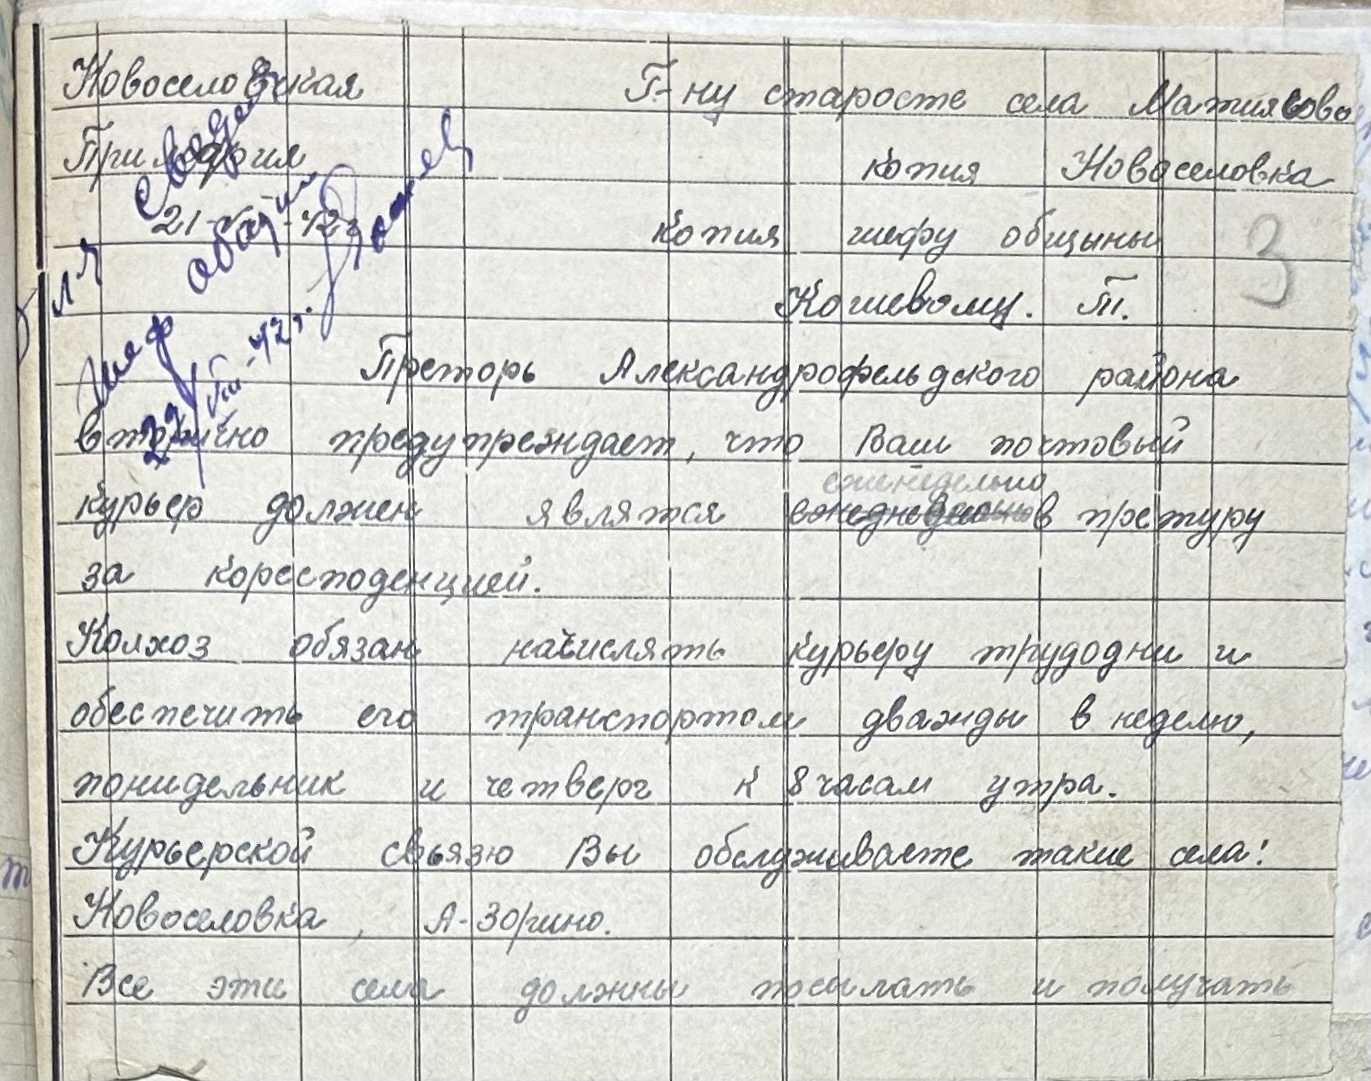 Новоселовская
Г-ну старосте села Матиясово
копия Новоселовка
21-VIII-42г
Копия шефу общыны
3
Кошевому. Т.
Преторь Александрофельдского района
вторично предупреждает, что Ваш почтовый
еженедельно
курьер должен являтся ежедневно в претуру
за коресподенцией.
Колхоз обязан начислять курьеру трудодни и
обеспечить его транспортом дважды в неделю,
понидельник и четверг к 8 часам утра.
Курьерской свьязю Вы обслуживаете такие села:
Новоселовка, А-Зорино.
Все эти села должны посилать и получать
Для сведен
шеф общин
22/VIII-42г.